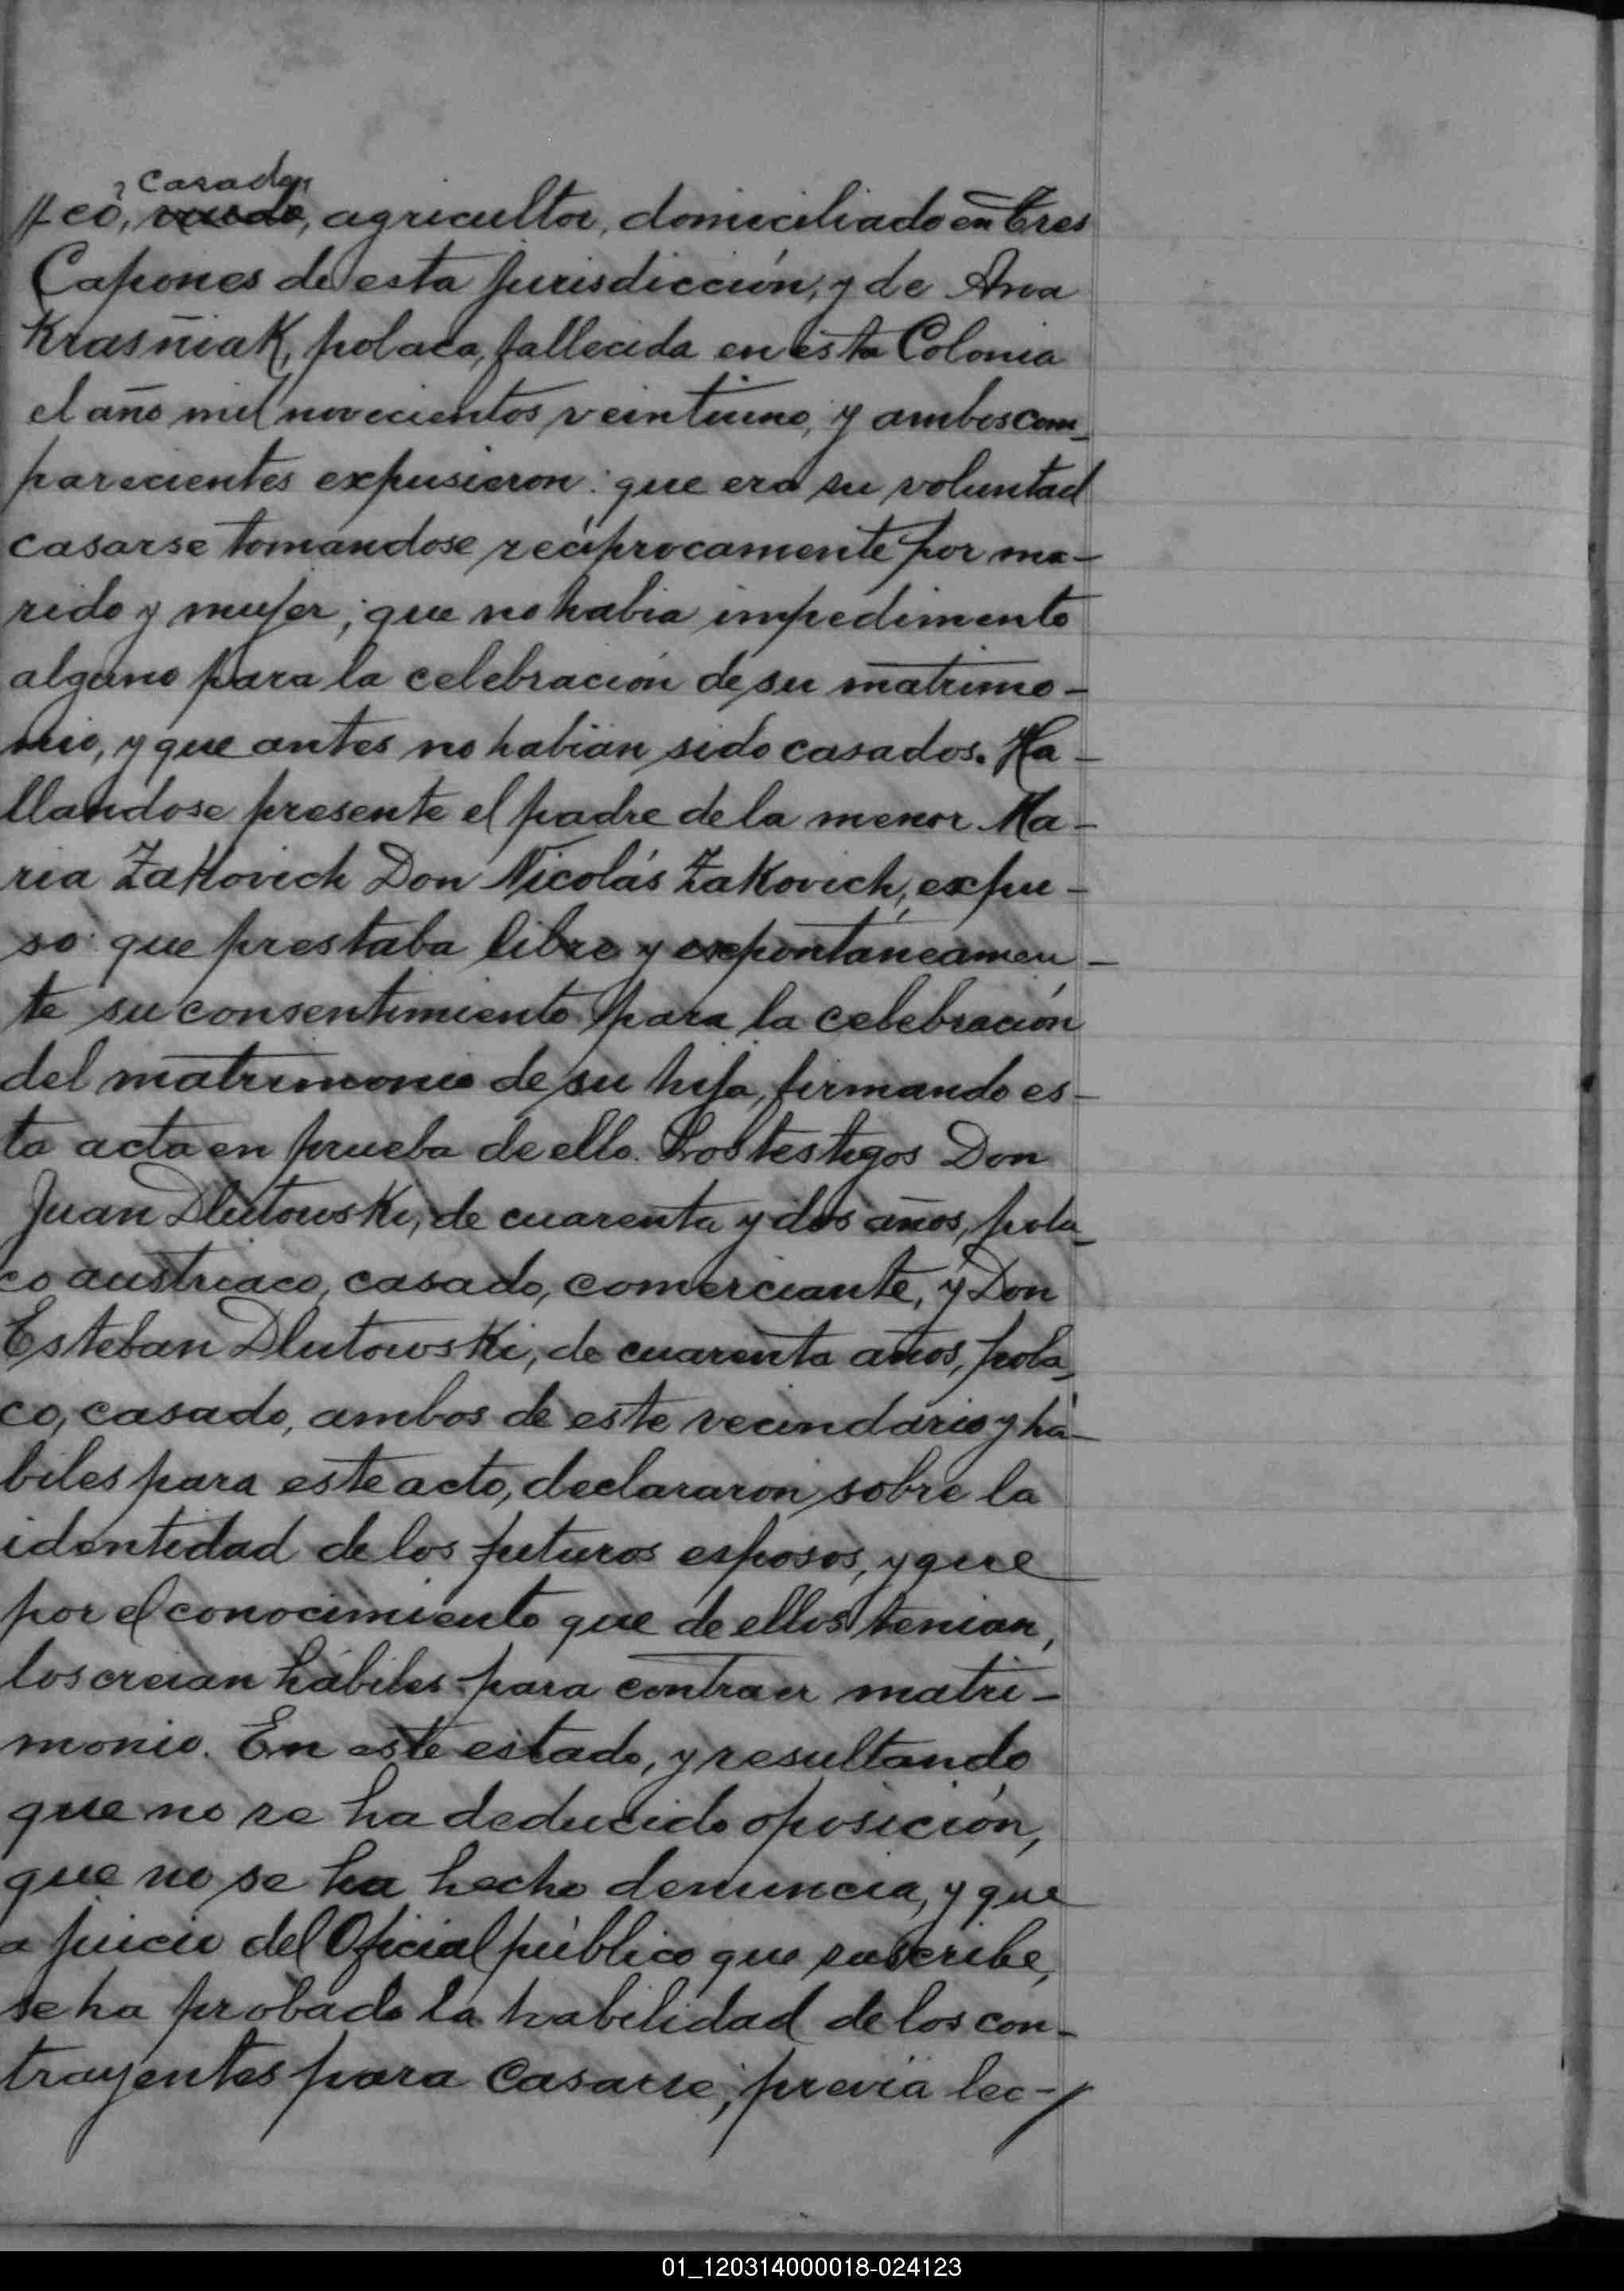 casado,
//co, viudo, agricultor, domiciliado en Tres
Capones de esta jurisdicción, y de Ana
Krasñiak, polaca, fallecida en esta Colonia
el año mil novecientos veintiuno, y ambos com_
parecientes expusieron: que era su voluntad
casarse tomandose recíprocamente por ma-
rido y mujer; que no habia impedimento
alguno para la celebración de su matrimo-
nio, y que antes no habian sido casados. Ha-
llandose presente el padre de la menor Ma-
ria Zakovich Don Nicolás Zakovich, expu-
so: que prestaba libre y expontáneamen-
te su consentimiento para la celebración
del matrimonio de su hija, firmando es-
ta acta en prueba de ello. Los testigos Don
Juan Dlutowski, de cuarenta y dos años, pola_
co austriaco, casado, comerciante, y Don
Esteban Dlutowski, de cuarenta años, pola_
co, casado, ambos de este vecindario y há-
biles para este acto, declararon sobre la
identidad de los futuros esposos, y que
por el conocimiento que de ellos tenian,
los creian hábiles para contraer matri-
monio. En este estado, y resultando
que no se ha deducido oposición,
que no se ha hecho denuncia, y que
a juicio del Oficial público que suscribe,
se ha probado la habilidad de los con-
trayentes para casarse; previa lec-/
01_120314000018-024123